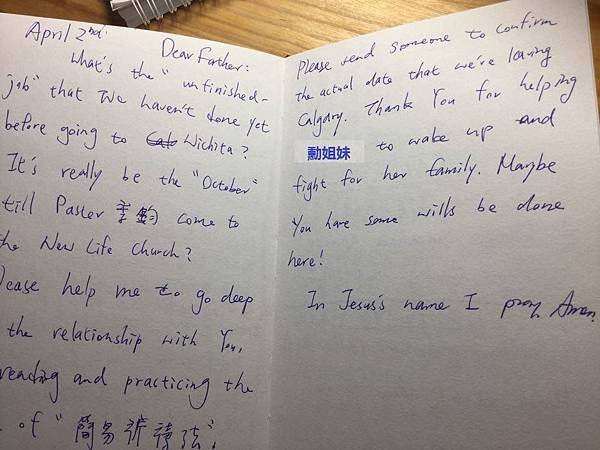 April 2nd.
Dear Father:
What's the "unfinished-
job" that we haven't done yet
before going to Wichita?
It's really be the "October"
till Paster 李 come to
the New Life Church?
lease help me to go deep
the relationship with You,
reading and practicing the
of "簡易祈禱法".
Please send someone to confirm
the actual date that we're leaving
Calgary. Thank You for helping
勳姐妹 to wake up and
fight for her family. Maybe
You have some wills be done
here!
In Jesus's name I pray, Amen.